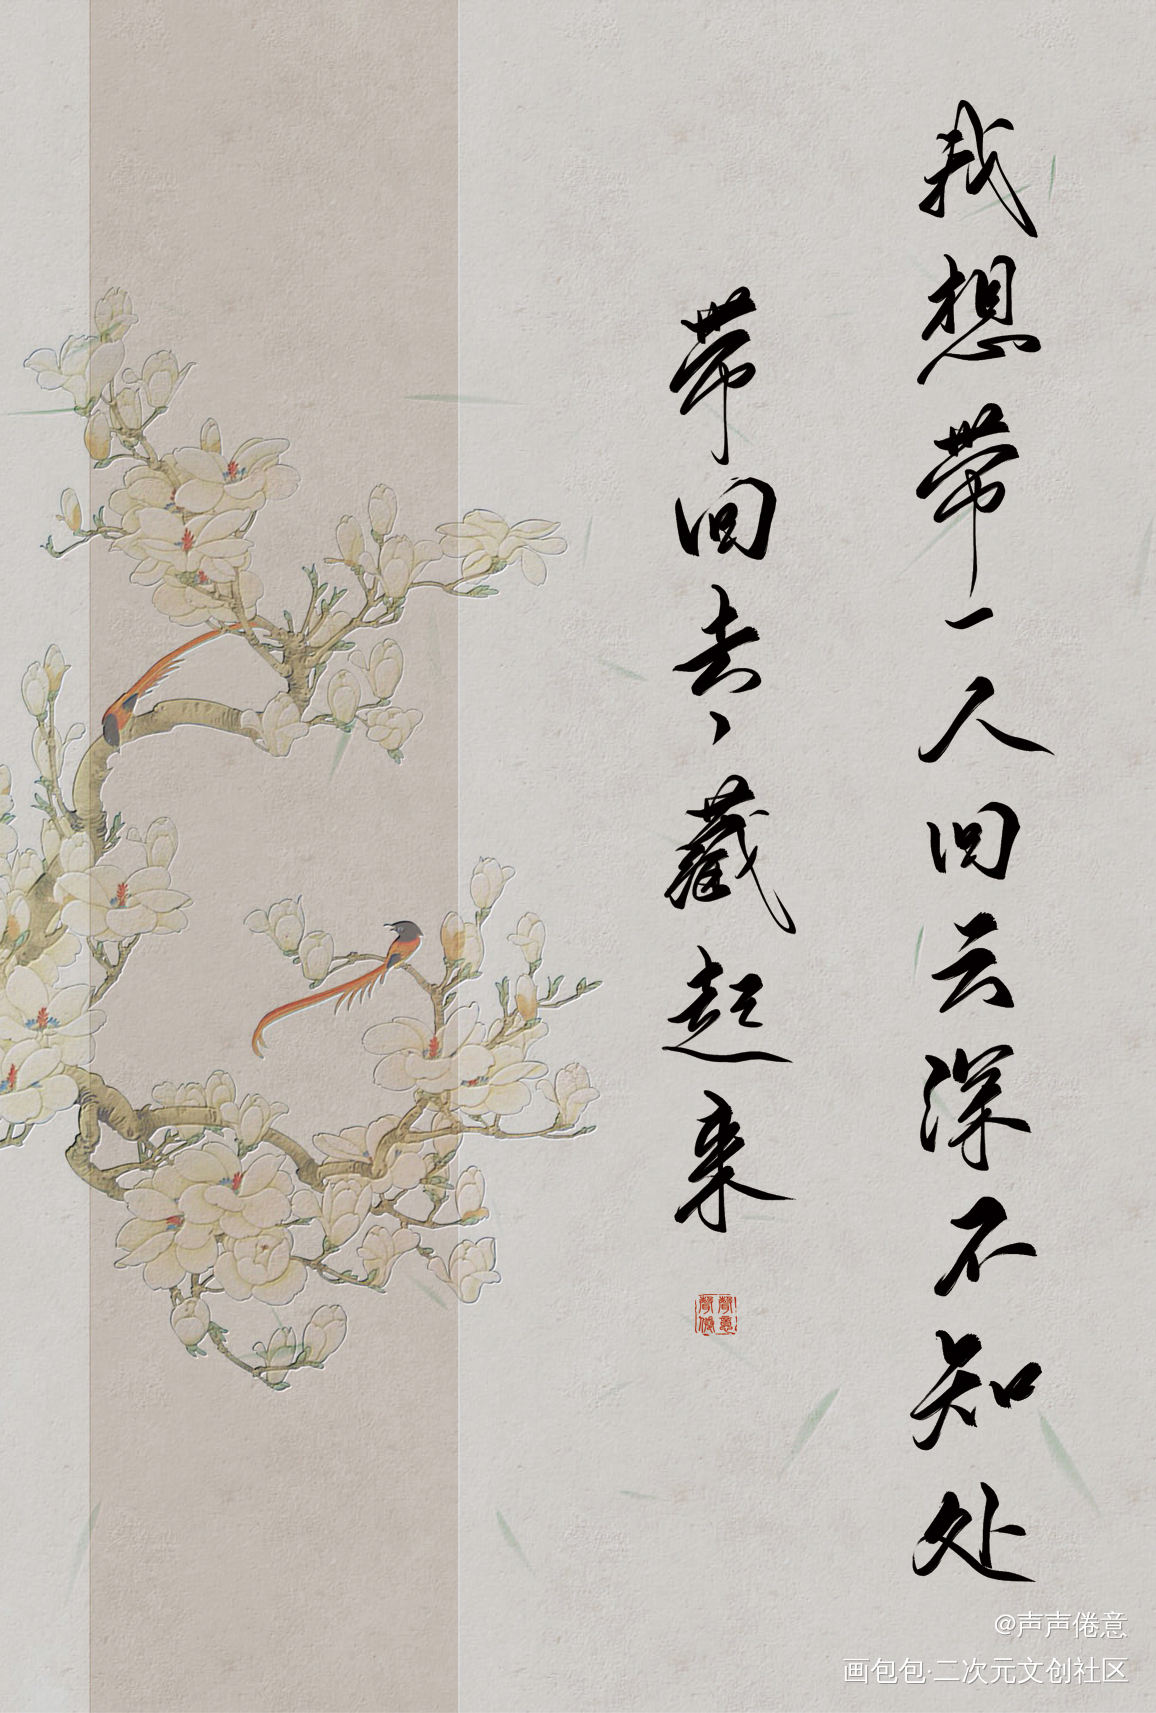 我想带一人回云深不知处
带回去、藏起来
聲意
聲倦
@声声倦意
画包包·二次元文创社区